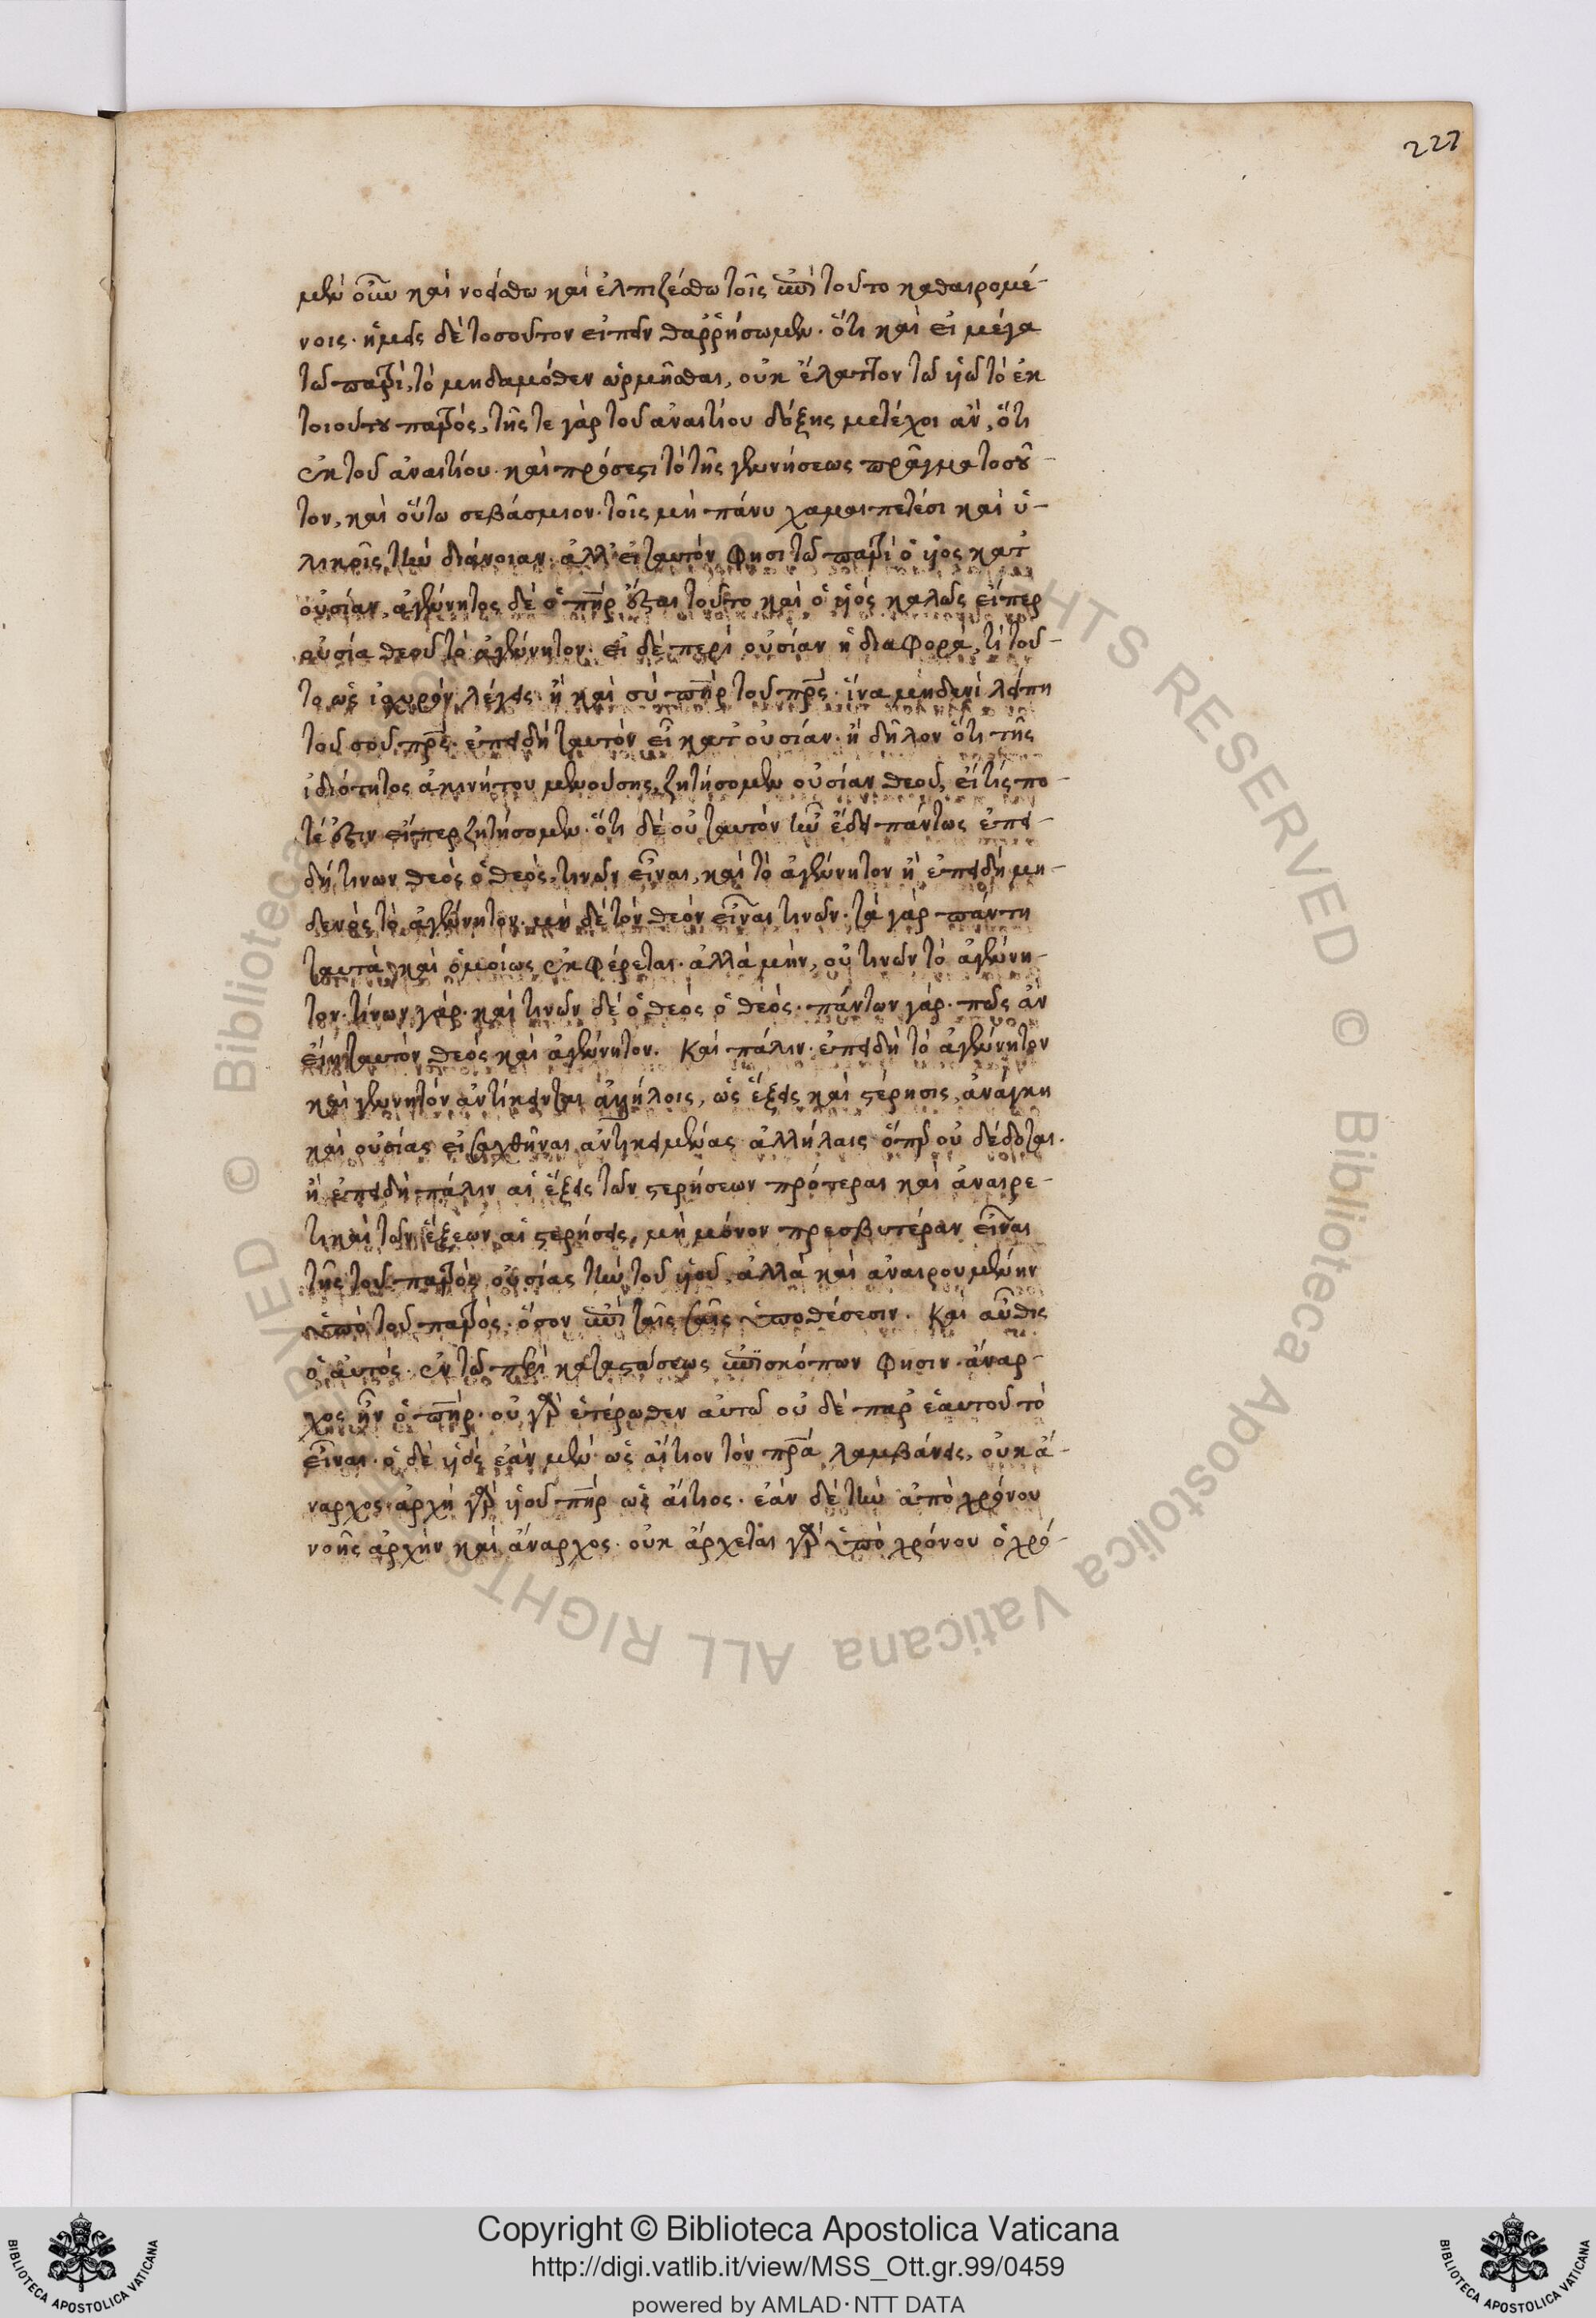 227
μὲν οὖν καὶ νοείσθω καὶ ἐλπιζέσθω τοῖς ἐπὶ τοῦτο καθαιρομέ-
νοις· ἡμᾶς δὲ τοσοῦτον εἰπεῖν θαῤῥήσωμεν· ὅτι καὶ εἰ μέγα
τῶ πατρὶ, τὸ μηδαμόθεν ὡρμῆσθαι, οὐκ ἔλαττον τῶ υἱῶ τὸ ἐκ
τοιούτου πατρός, τῆς τε γὰρ τοῦ ἀναιτίου δόξης μετέχοι ἂν, ὅτι
ἐκ τοῦ ἀναιτίου· καὶ πρόσεστι τὸ τῆς γεννήσεως πρᾶγμα τοσοῦ-
τον, καὶ οὕτω σεβάσμιον· τοῖς μὴ πάνυ χαμαιπετέσι καὶ ὑ-
λικοῖς τὴν διάνοιαν· ἀλλ' εἰ ταυτόν φησι τῶ πατρὶ ὁ υἱος κατ'
οὐσίαν, ἀγέννητος δὲ ὁ πηρ ἔσται τοῦτο καὶ ὁ υἱός καλῶς εἴπερ
οὐσία θεοῦ τὸ ἀγέννητον· εἰ δὲ περὶ οὐσίαν ἡ διαφορά, τί τοῦ-
το ὡς ἰσχυρὸν λέγεις· ἢ καὶ σὺ πηρ τοῦ πρς· ἵνα μηδενὶ λείπη
τοῦ σοῦ πρς· ἐπειδὴ ταυτὸν εἶ κατ' οὐσίαν· ἢ δῆλον ὅτι τῆς
ἰδιότητος ἀκινήτου μενούσης, ζητήσομεν οὐσίαν θεοῦ, εἴ τίς πο-
τέ ἐστιν εἴπερ ζητήσομεν· ὅτι δὲ οὐ ταυτὸν ἦν ἔδει πάντως ἐπει-
δή τινων θεὸς ὁ θεὸς, τινῶν εἶναι, καὶ τὸ ἀγέννητον ἢ ἐπειδὴ μη-
δενὸς τὸ ἀγέννητον· μὴ δὲ τὸν θεὸν εἶναι τινῶν· τὰ γὰρ πάντη
ταυτὰ καὶ ὁμοίως ἐκφέρεται· ἀλλὰ μὴν, οὐ τινῶν τὸ ἀγέννη-
τον· τίνων γάρ· καὶ τινῶν δὲ ὁ θεὸς ὁ θεός· πάντων γάρ· πῶς ἂν
εἴη ταυτὸν θεός καὶ ἀγέννητον. Καὶ πάλιν· ἐπειδὴ τὸ ἀγέννητον
καὶ γεννητὸν ἀντίκειται ἀλλήλοις, ὡς ἕξεις καὶ στέρησις, ἀνάγκη
καὶ οὐσίας εἰσαχθῆναι ἀντικειμένας ἀλλήλαις ὅπερ οὐ δέδοται·
ἢ ἐπειδὴ πάλιν αἱ ἕξεις τῶν στερήσεων πρότεραι καὶ ἀναιρε-
τικαὶ τῶν ἕξεων αἱ στερήσεις, μὴ μόνον πρεσβυτέραν εἶναι
τῆς τοῦ πατρὸς οὐσίας τὴν τοῦ υἱοῦ, ἀλλὰ καὶ ἀναιρουμένην
ὑπὸ τοῦ πατρὸς· ὅσον ἐπὶ ταῖς σαῖς ὑποθέσεσιν. Καὶ αὖθις
ὁ αὐτός· ἐν τῶ περὶ καταστάσεως ἐπισκόπων φησιν· ἄναρ-
χος ἦν ὁ πηρ· οὐ γὰρ ἑτέρωθεν αὐτῶ οὐ δὲ παρ' ἑαυτοῦ τὸ
εἶναι· ὁ δὲ υἱὸς ἐὰν μὲν ὡς αἴτιον τὸν πρα λαμβάνεις, οὐκ ἄ-
ναρχος· ἀρχὴ γὰρ υἱοῦ πηρ ὡς αἴτιος· ἐὰν δὲ τὴν ἀπὸ χρόνου
νοῆς ἀρχὴν καὶ ἄναρχος· οὐκ ἄρχεται γὰρ ὑπὸ χρόνου ὁ χρό-
© Biblioteca Apostolica Vaticana ALL RIGHTS RESERVED
Copyright © Biblioteca Apostolica Vaticana
http://digi.vatlib.it/view/MSS_Ott.gr.99/0459
powered by AMLAD·NTT DATA
BIBLIOTECA APOSTOLICA VATICANA
BIBLIOTECA APOSTOLICA VATICANA